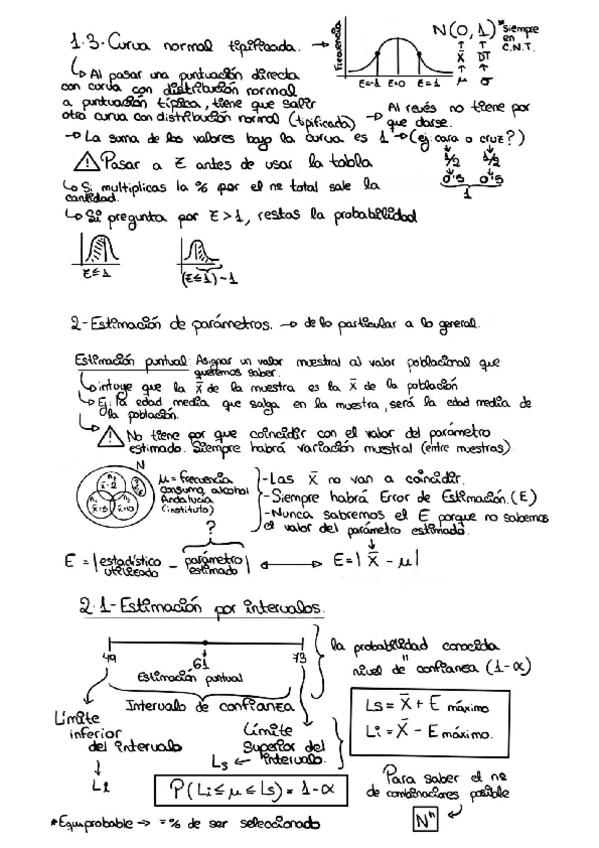 1.3- Curva normal tipificada. →
Frecuencia
z=-1 z=0 z=1
N(0,1) *siempre en C.N.T.
↑ ↑
X̄ DT
↑ ↑
μ σ
↳ Al pasar una puntuación directa
con curva con distribución normal
a puntuación típica, tiene que salir
otra curva con distribución normal (tipificada)
→ Al revés no tiene por
que darse.
→ La suma de los valores bajo la curva es 1 → (ej: cara o cruz?)
1/2 1/2
0'5 0'5
1
⚠ Pasar a z antes de usar la tabla
↳ Si multiplicas la % por el nº total sale la
cantidad.
↳ Si pregunta por z>1, restas la probabilidad
z≤1 (z≤1)-1
2- Estimación de parámetros. → de lo particular a lo general.
Estimación puntual: Asignar un valor muestral al valor poblacional que
queremos saber.
↳ intuye que la X̄ de la muestra es la X̄ de la población
↳ Ej: la edad media que salga en la muestra, será la edad media de
la población.
⚠ No tiene por que coincidir con el valor del parámetro
estimado. Siempre habrá variación muestral (entre muestras).
N
μ = frecuencia
consumo alcohol
Andalucía
(instituto)
?
- Las X̄ no van a coincidir.
- Siempre habrá Error de Estimación. (E)
- Nunca sabremos el E porque no sabemos
el valor del parámetro estimado.
E = |estadístico utilizado - parámetro estimado| ↔ E = |X̄ - μ|
2.1- Estimación por intervalos.
49 61 73
Estimación puntual
Intervalo de confianza
la probabilidad conocida
nivel de " confianza (1-α)
Límite
inferior
del intervalo
↓
Li
Límite
Superior del
intervalo.
Ls ←
Ls = X̄ + E máximo
Li = X̄ - E máximo.
P(Li ≤ μ ≤ Ls) = 1-α
Para saber el nº
de combinaciones posible
Nⁿ
*Equiprobable → = % de ser seleccionado